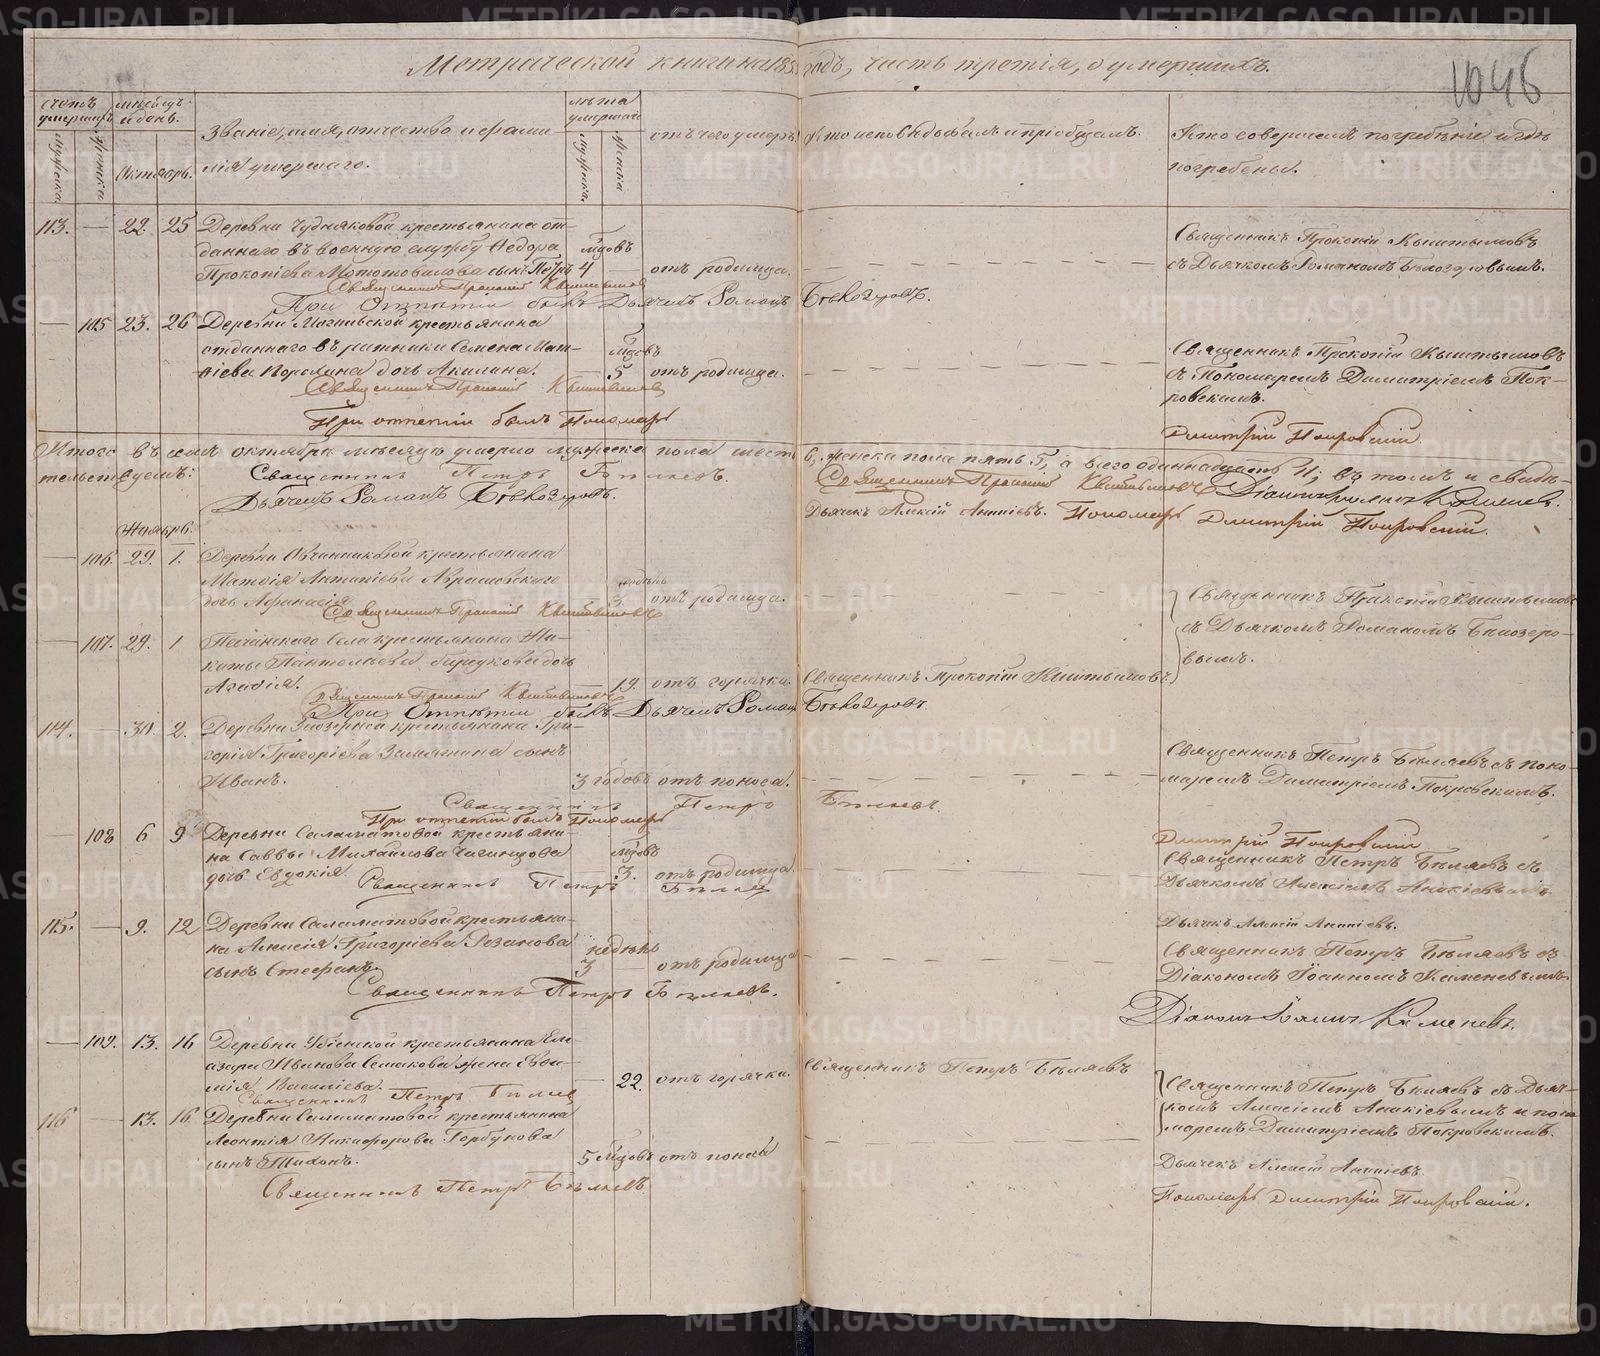 Метрической книги на 185 годъ, часть третія, о умершихъ.
1046
счетъ умершихъ
мужеска
женска
мѣсяцъ и день.
Октябрь.
Званіе, имя, отчество и фами-
лія умершаго.
лѣта умершаго
мужеска.
женска
отъ чего умеръ
Кто исповѣдовалъ и пріобщалъ.
Кто совершалъ погребеніе и гдѣ
погребены.
113. — 22. 25 Деревни крестьянина от-
даннаго въ военную службу Ѳедора
Прокопіева сынъ Петръ 4 мѣсяцовъ отъ родимца.
Священникъ Прокопій Кыштымовъ
съ Дьячкомъ Романомъ Бѣлозеровымъ.
Священникъ Прокопій Кыштымовъ
При Отпѣтіи былъ Дьячекъ Романъ Бѣлозеровъ.
— 105 23. 26 Деревни крестьянина
отданнаго въ ратники Семена Мат-
вія дочь Акилина. 5 мѣсяцовъ отъ родимца.
Священникъ Прокопій Кыштымовъ
съ Пономаремъ Димитріемъ Пок-
ровскимъ.
Священникъ Прокопій Кыштымовъ
При отпетіи былъ Пономарь
Дмитрій Покровскій
Итого въ семъ октябрѣ месяцѣ умерло мужеска пола шесть 6, женска пола пять 5, а всего одиннадцать 11; въ томъ и свидѣ-
тельствуемъ:
Священникъ Петръ Бѣляевъ.
Священникъ Прокопій Кыштымовъ Діаконъ Іоаннъ Каменевъ.
Дьячекъ Романъ Бѣлозеровъ.
Дьячек Алексій Ананіевъ. Пономарь Дмитрій Покровскій.
Ноябрь.
— 106. 29. 1. Деревни Овчинниковой крестьянина
Матѳія Антипіева
дочь Афанасія 3. недѣль отъ родимца.
Священникъ Прокопій Кыштымовъ
съ Дьячкомъ Романомъ Бѣлозеро-
вымъ.
Священникъ Прокопій Кыштымовъ
— 107. 29. 1 села крестьянина Ни-
киты Пантелѣева дочь
Агафія. 19. отъ горячки. Священникъ Прокопій Кыштымовъ.
Священникъ Прокопій Кыштымовъ
При Отпѣтіи былъ Дьячекъ Романъ Бѣлозеровъ.
114. — 30. 2. Деревни крестьянина Гри-
горія Григоріева Замятина сынъ
Иванъ. 3 годовъ отъ поноса.
Священникъ Петръ Бѣляевъ съ поно-
маремъ Димитріемъ Покровскимъ.
Священникъ Петръ Бѣляевъ.
При отпетіи былъ Пономарь
Дмитрій Покровскій
— 108 6 9 Деревни Саламатовой крестьяни-
на Саввы Михайлова
дочь Евдокія 3. мѣсяцовъ отъ родимца
Священникъ Петръ Бѣляевъ съ
Дьячкомъ Алексіемъ Ананіевымъ.
Священникъ Петръ Бѣляевъ
Дьячекъ Алексій Ананіевъ.
115. — 9. 12 Деревни Саламатовой крестьяни-
на Алексія Григоріева Резанова
сынъ Стефанъ. 3 недѣль отъ родимца
Священникъ Петръ Бѣляевъ съ
Діакономъ Іоанномъ Каменевымъ
Священникъ Петръ Бѣляевъ.
Діаконъ Іоаннъ Каменевъ.
— 109. 13. 16 Деревни крестьянина Ели-
азара Иванова жена Евѳи-
мія 22. отъ горячки. Священникъ Петръ Бѣляевъ
Священникъ Петръ Бѣляевъ съ Дьяч-
комъ Алексіемъ Ананіевымъ и поно-
маремъ Димитріемъ Покровскимъ.
Священникъ Петръ Бѣляевъ
116 — 13. 16. Деревни Саламатовой крестьянина
Леонтія Никифорова Горбунова
сынъ Тихонъ. 5 мѣсяцовъ отъ
Дьячекъ Алексій Ананіевъ.
Священникъ Петръ Бѣляевъ
Пономарь Дмитрій Покровскій.
METRIKI.GASO-URAL.RU